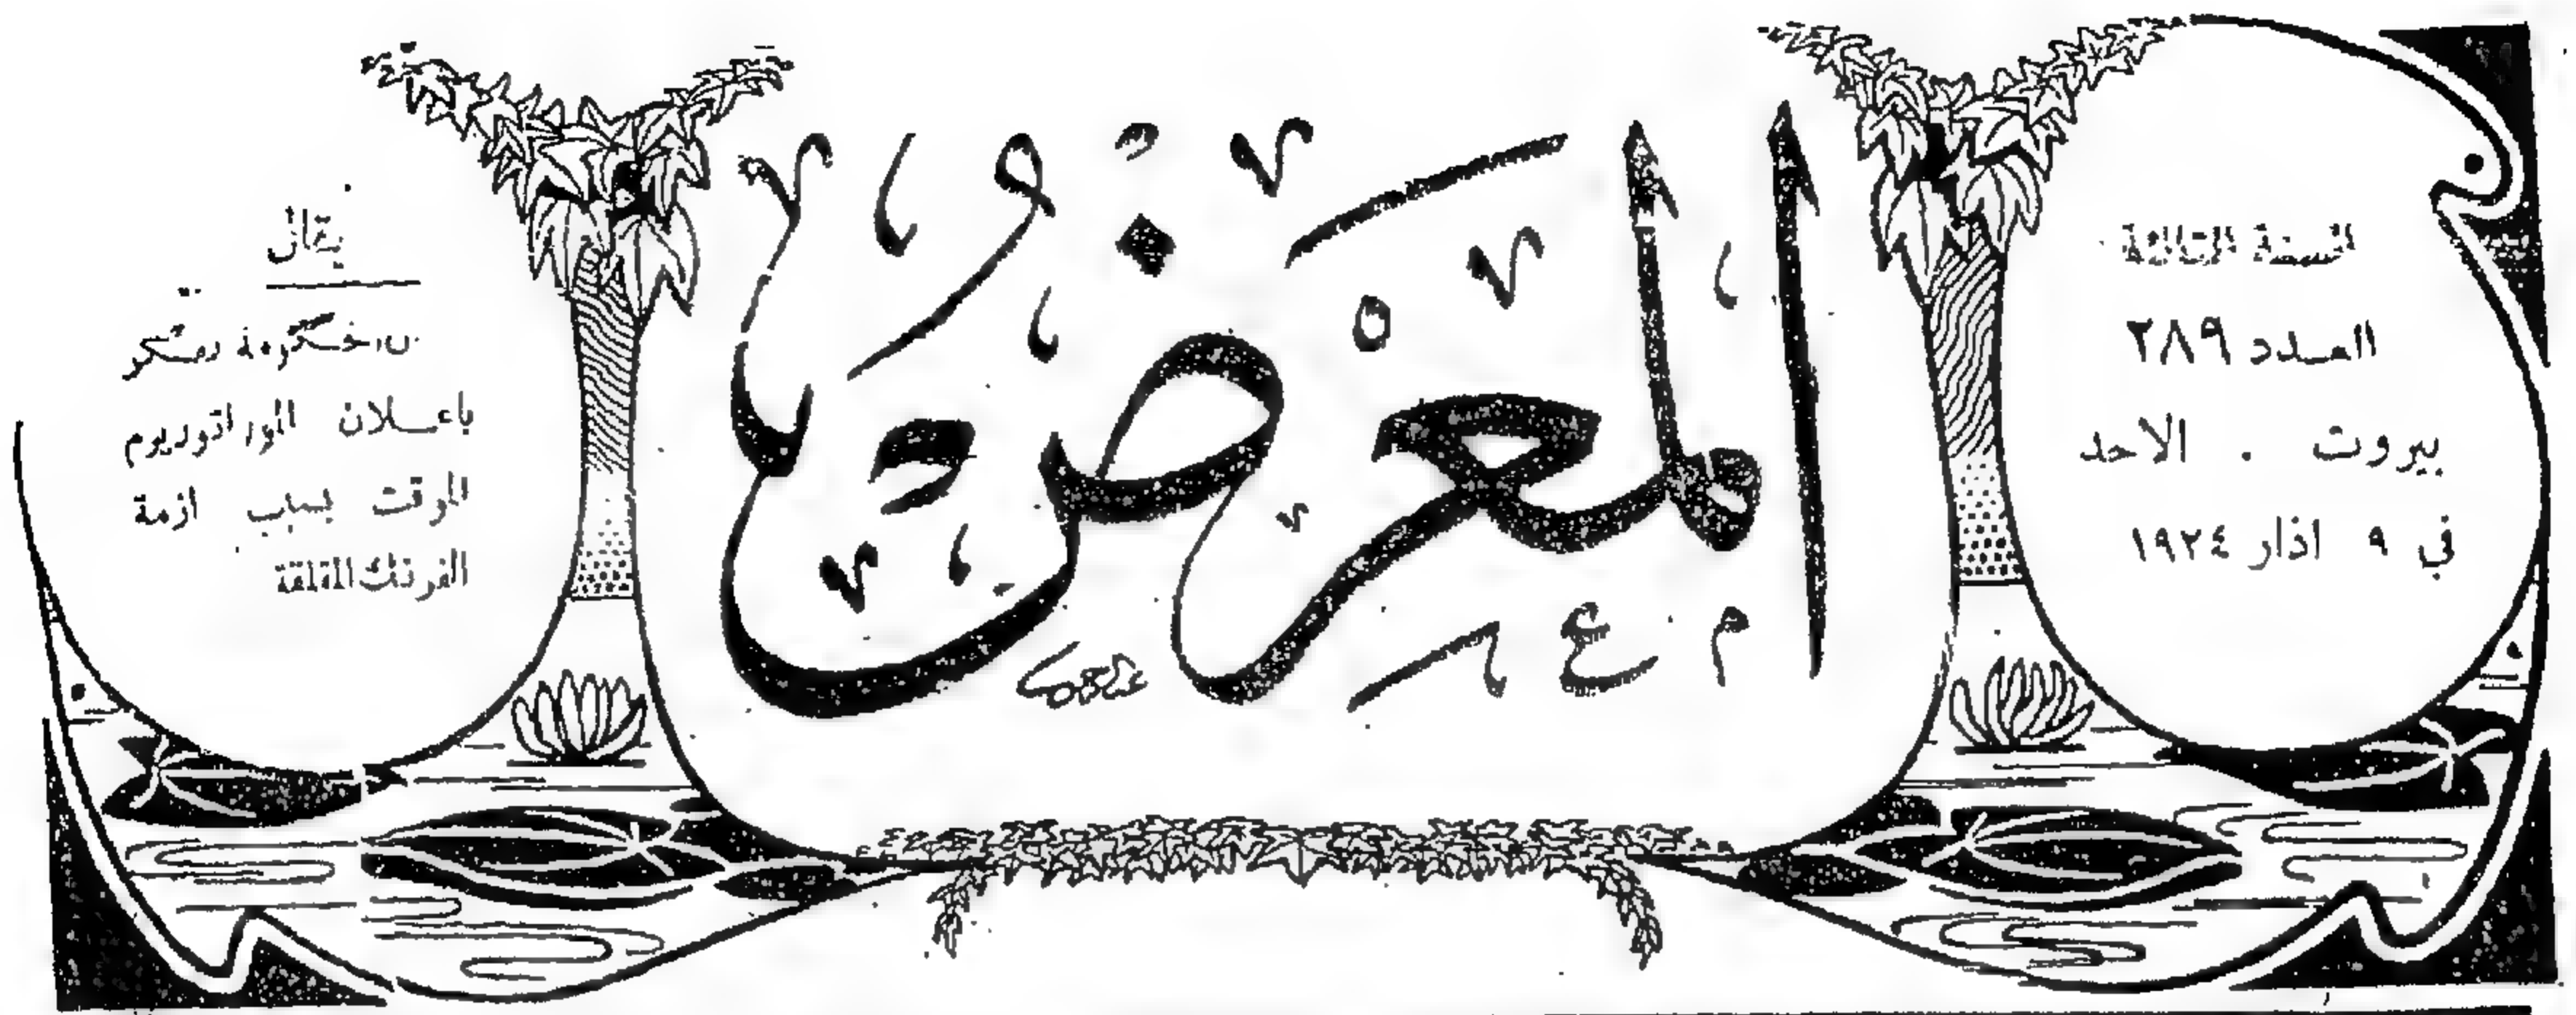 السنة الثالثة
العدد ٢٨٩
بيروت . الاحد
في ٩ اذار ١٩٢٤
المعرض
يقال
ان الحكومة تفتكر
باعلان الموراتوريوم
الموقت بسبب ازمة
الفرنك المقلقة